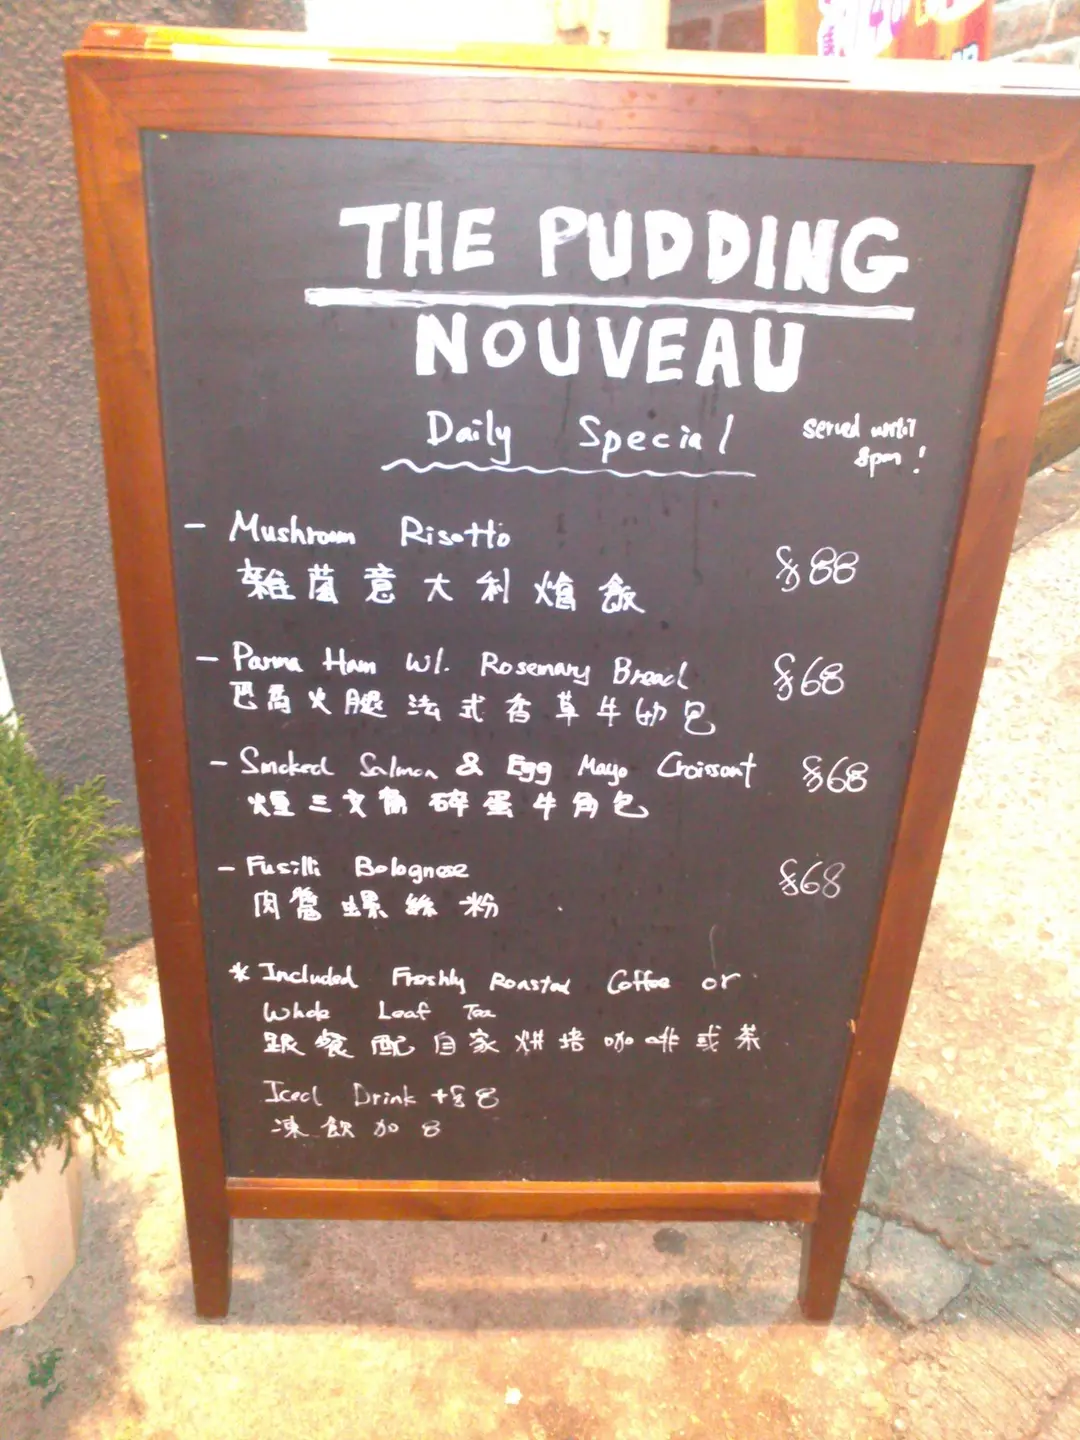 THE PUDDING
NOUVEAU
Daily Special
served until
8pm !
- Mushroom Risotto
雜菌意大利燴飯
$88
- Parma Ham w/. Rosemary Bread
巴馬火腿法式香草牛奶包
$68
- Smoked Salmon & Egg Mayo Croissant
煙三文魚碎蛋牛角包
$68
- Fusilli Bolognese
肉醬螺絲粉
$68
* Included Freshly Roasted Coffee or
Whole Leaf Tea
跟餐配自家烘培咖啡或茶
Iced Drink +$8
凍飲加8